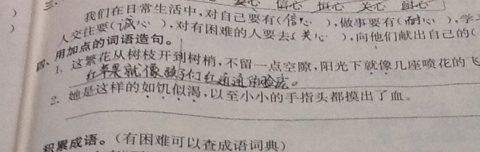 三、
爱心 信心 恒心 关心 耐心
我们在日常生活中,对自己要有(信心),做事要有(耐心),学
人交往要(诚心),对有困难的人要去(关心),向他们献出自己的(
四、用加点的词语造句。
1. 这繁花从树枝开到树梢,不留一点空隙,阳光下就像几座喷花的飞
红苹果就像孩子们红通通的脸蛋。
2. 她是这样的如饥似渴,以至小小的手指头都摸出了血。
积累成语。(有困难可以查成语词典)